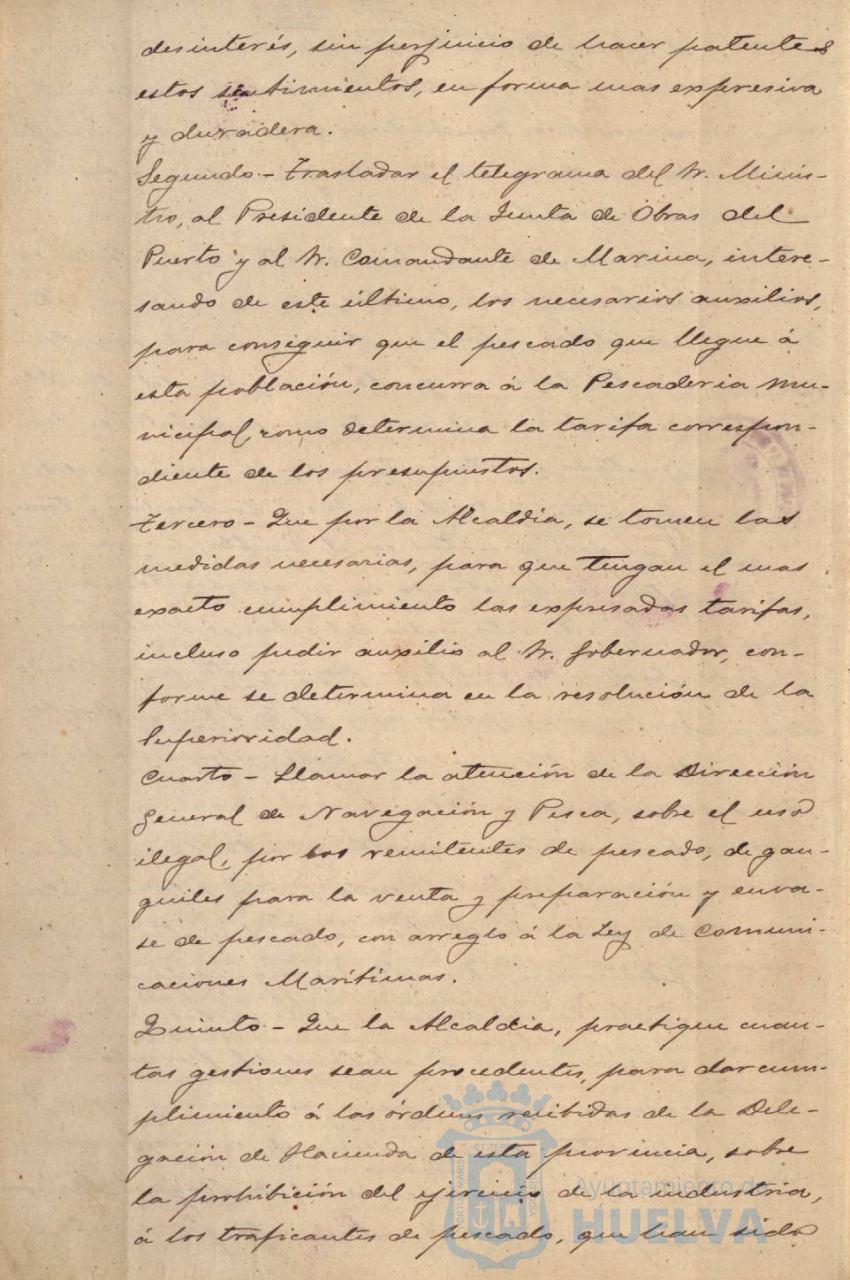 desinterés, sin perjuicio de hacer patentes
estos sentimientos, en forma mas expresiva
y duradera.
Segundo.- Trasladar el telegrama del Sr. Minis-
tro, al Presidente de la Junta de Obras del
Puerto y al Sr. Comandante de Marina, intere-
sando de este último, los necesarios auxilios,
para conseguir que el pescado que llegue á
esta población, concurra á la Pescaderia mu-
nicipal, como determina la tarifa correspon-
diente de los presupuestos.
Tercero - Que por la Alcaldia, se tomen las
medidas necesarias, para que tengan el mas
exacto cumplimiento las expresadas tarifas,
incluso pedir auxilio al Sr. Gobernador, con-
forme se determina en la resolución de la
Superioridad.
Cuarto - Llamar la atención de la Dirección
General de Navegación y Pesca, sobre el uso
ilegal, por los remitentes de pescado, de gan-
guiles para la venta y preparación y enva-
se de pescado, con arreglo á la Ley de Comuni-
caciones Marítimas.
Quinto - Que la Alcaldia, practique cuan-
tas gestiones sean procedentes, para dar cum-
plimiento á las órdenes recibidas de la Dele-
gación de Hacienda de esta provincia, sobre
la prohibición del ejercicio de la industria,
á los traficantes de pescado, que han sido
Ayuntamiento de
HUELVA